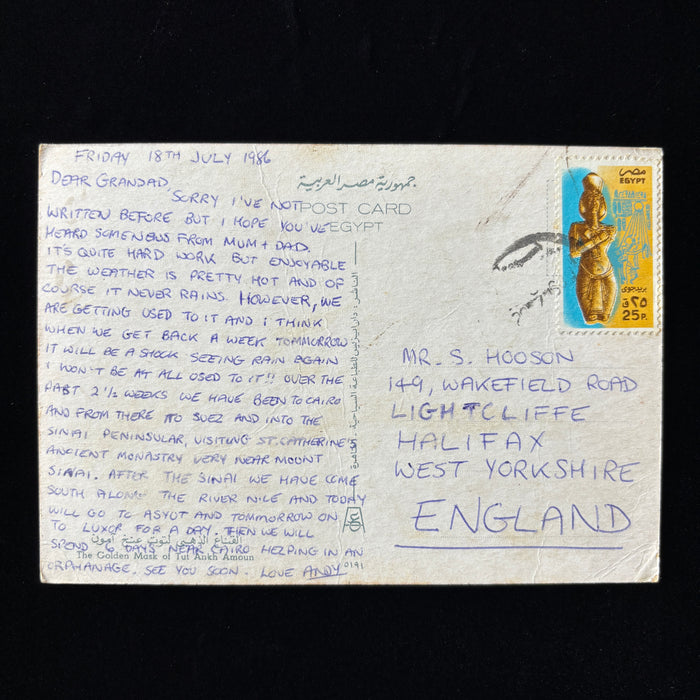 FRIDAY 18TH JULY 1986
DEAR GRANDAD,
SORRY I'VE NOT
WRITTEN BEFORE BUT I HOPE YOU'VE
HEARD SOME NEWS FROM MUM + DAD.
IT'S QUITE HARD WORK BUT ENJOYABLE
THE WEATHER IS PRETTY HOT AND OF
COURSE IT NEVER RAINS. HOWEVER, WE
ARE GETTING USED TO IT AND I THINK
WHEN WE GET BACK A WEEK TOMMORROW
IT WILL BE A SHOCK SEEING RAIN AGAIN
I WON'T BE AT ALL USED TO IT!! OVER THE
PAST 2½ WEEKS WE HAVE BEEN TO CAIRO
AND FROM THERE TO SUEZ AND INTO THE
SINAI PENINSULAR, VISITING ST. CATHERINE'S
ANCIENT MONASTRY VERY NEAR MOUNT
SINAI. AFTER THE SINAI WE HAVE COME
SOUTH ALONG THE RIVER NILE AND TODAY
WILL GO TO ASYUT AND TOMMORROW ON
TO LUXOR FOR A DAY. THEN WE WILL
SPEND 6 DAYS NEAR CAIRO HELPING IN AN
ORPHANAGE. SEE YOU SOON. LOVE ANDY
القناع الذهبي لتوت عنخ آمون
The Golden Mask of Tut Ankh Amoun
0191
جمهورية مصر العربية
POST CARD
EGYPT
مصر
EGYPT
بريد جوى
٢٥ ق
25 P.
MR. S. HOOSON
149, WAKEFIELD ROAD
LIGHTCLIFFE
HALIFAX
WEST YORKSHIRE
ENGLAND